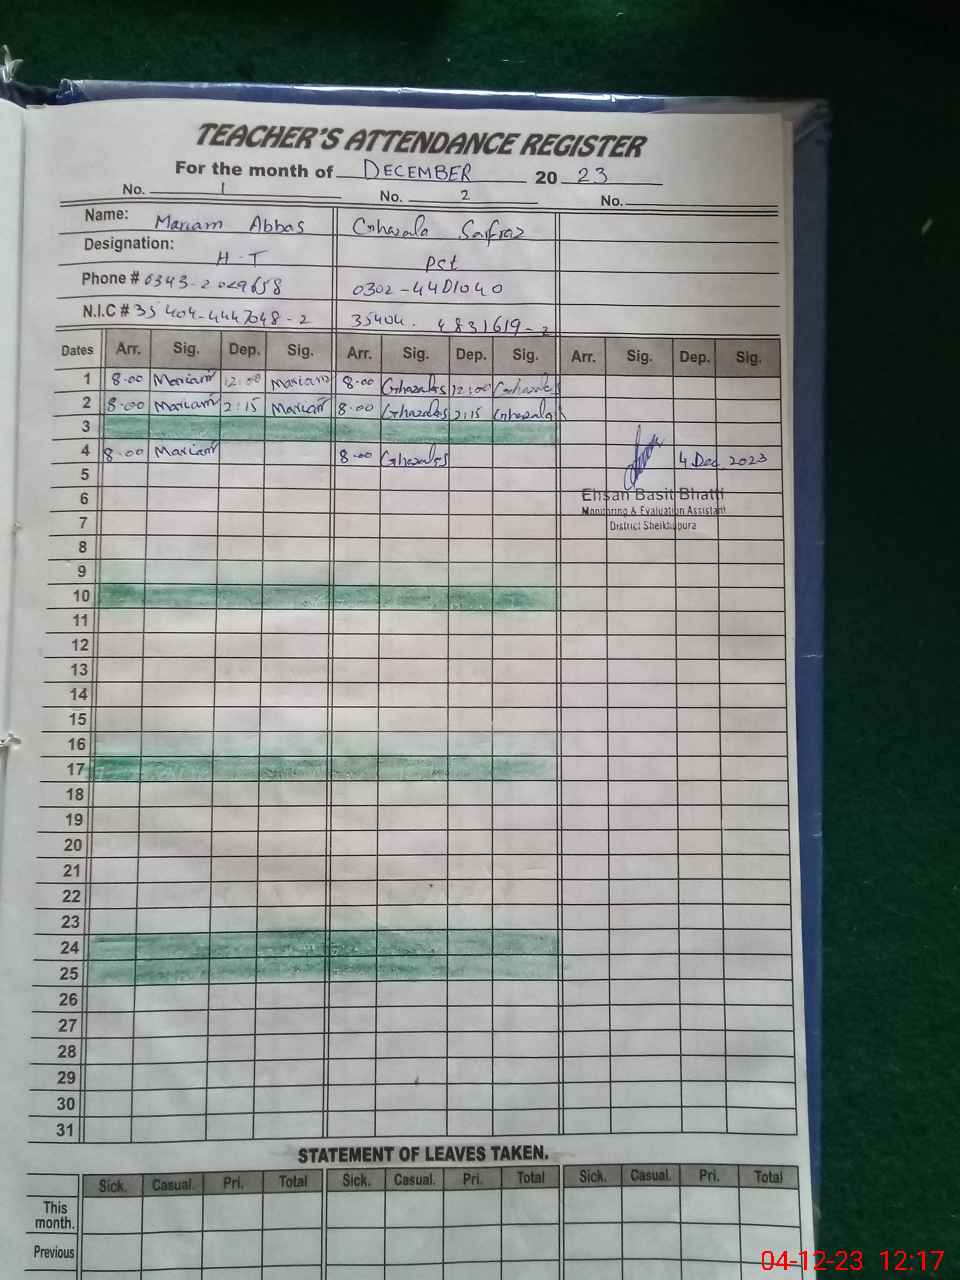 TEACHER'S ATTENDANCE REGISTER
For the month of DECEMBER 2023
No. 1 No. 2 No.
Name: Mariam Abbas Ghazala Sarfraz
Designation: H.T Pst
Phone # 0343-2029658 0302-4401040
N.I.C # 35404-4447048-2 35404. 4831619-2
Dates Arr. Sig. Dep. Sig. Arr. Sig. Dep. Sig. Arr. Sig. Dep. Sig.
1 8.00 Mariam 12:00 Mariam 8.00 Ghazala 12:00 Ghazala
2 8.00 Mariam 2:15 Mariam 8.00 Ghazala 2:15 Ghazala
3
4 8.00 Mariam 8.00 Ghazala 4 Dec 2023
5
6 Ehsan Basit Bhatti
7 Monitoring & Evaluation Assistant
District Sheikhupura
8
9
10
11
12
13
14
15
16
17
18
19
20
21
22
23
24
25
26
27
28
29
30
31
STATEMENT OF LEAVES TAKEN.
Sick. Casual. Pri. Total Sick. Casual. Pri. Total Sick. Casual. Pri. Total
This
month.
Previous
04-12-23 12:17